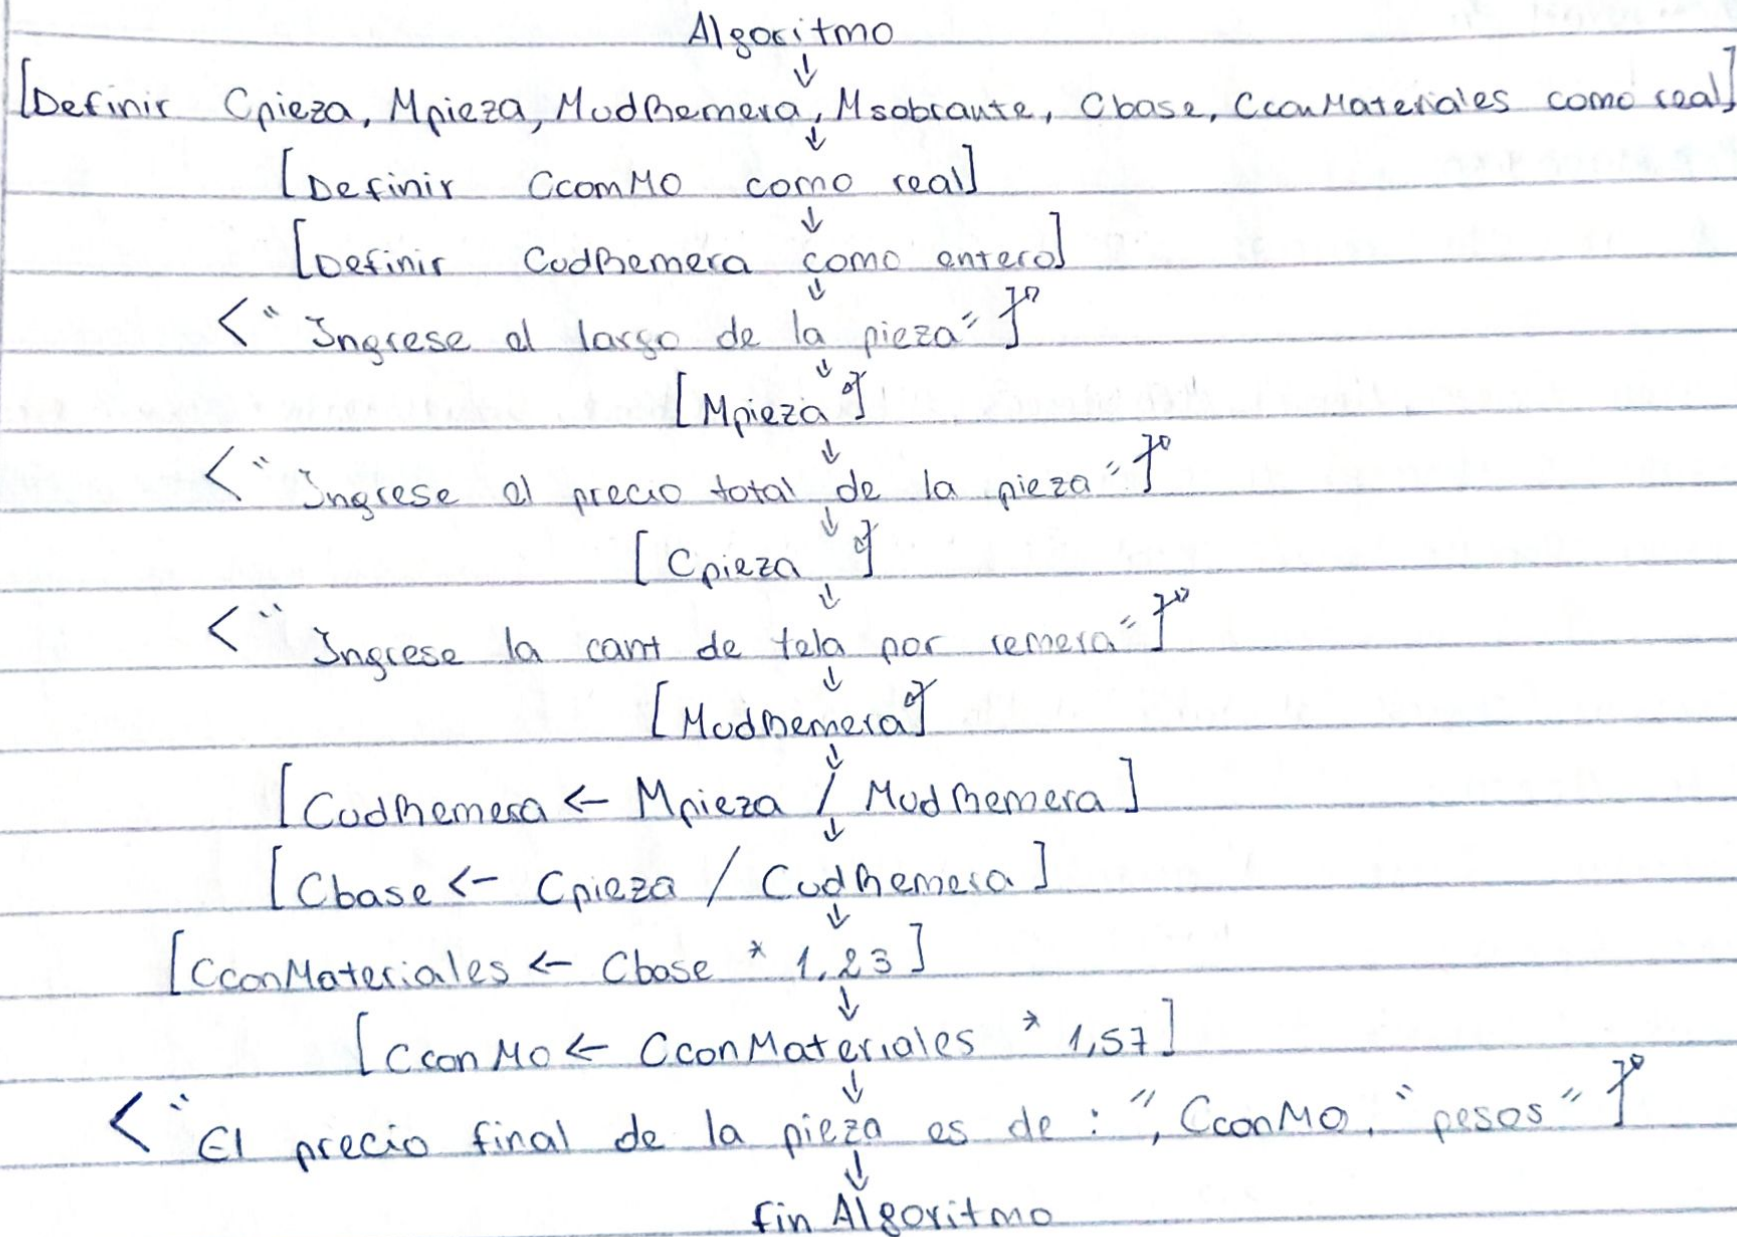 Algoritmo
[Definir Cpieza, Mpieza, MudRemera, Msobrante, Cbase, CconMateriales como real]
[Definir CcomMO como real]
[Definir CudRemera como entero]
<"Ingrese el largo de la pieza"]
[Mpieza]
<"Ingrese el precio total de la pieza"]
[Cpieza]
<"Ingrese la cant de tela por remera"]
[MudRemera]
[CudRemera ← Mpieza / MudRemera]
[Cbase ← Cpieza / CudRemera]
[CconMateriales ← Cbase * 1,23]
[CconMO ← CconMateriales * 1,57]
<"El precio final de la pieza es de : ", CconMO, "pesos"]
fin Algoritmo